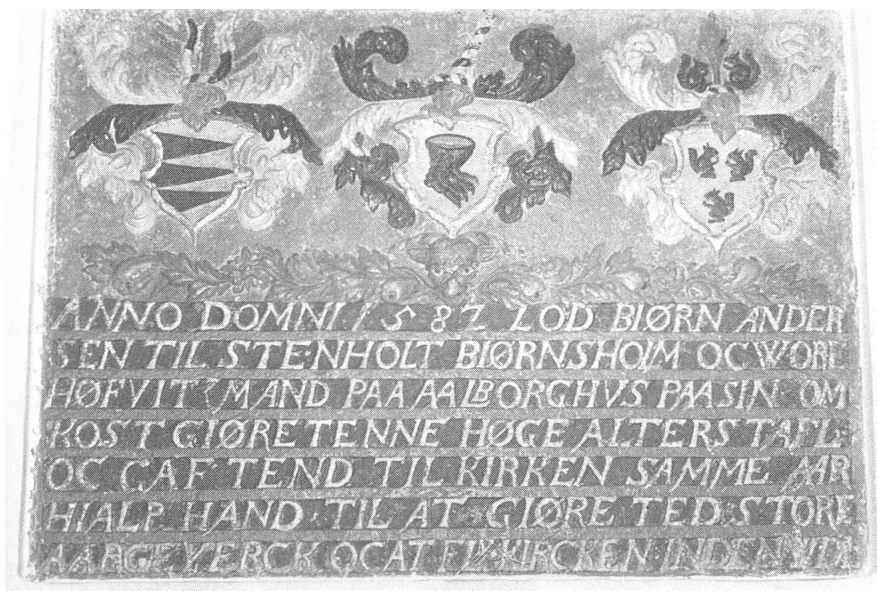 ANNO DOMNI 1582 LOD BIØRN ANDER
SEN TIL STE·NHOLT BIØRNSHOLM OC WORE
HØFVITZMAND PAA AALBORGHVS PAA SIN OM
KOST GIØRE TENNE HØGE ALTERS TAFLE
OC GAF TEND TIL KIRKEN SAMME AAR
HIALP HAND TIL AT GIØRE TED STORE
KIRCKEN INDEN